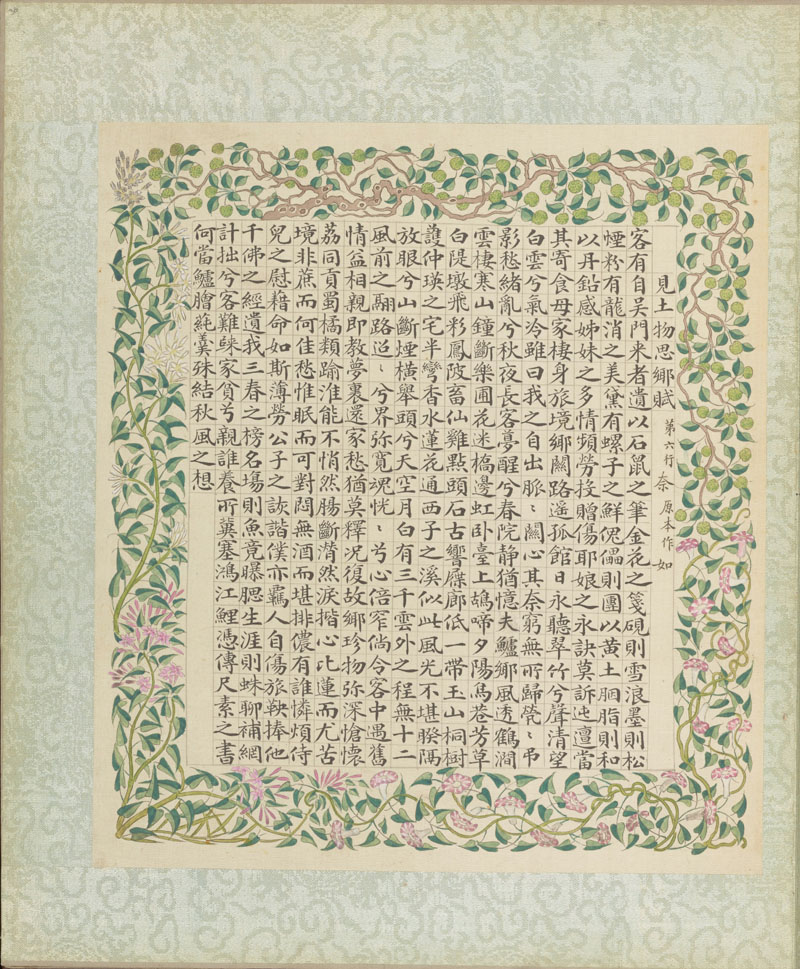 見土物思鄉賦 第六行 奈 原本作 如
客有自吳門来者遺以石鼠之筆金花之箋硯則雪浪墨則松
煙粉有龍消之美黛有螺子之鮮傀儡則團以黄土胭脂則和
以丹鉛感姊妹之多情頻勞投贈傷耶娘之永訣莫訴迍邅當
其寄食母家棲身旅境鄉關路遥孤館日永聽翠竹兮聲清望
白雲兮氣冷雖曰我之自出脈〻關心其奈窮無所歸煢〻弔
影愁緒亂兮秋夜長客夢醒兮春院静猶憶夫鱸鄉風透鶴澗
雲棲寒山鐘斷樂圃花迷橋邊虹卧臺上鴣啼夕陽馬巷芳草
白隄墩飛彩鳳陂畜仙雞點頭石古響屧廊低一帶玉山桐樹
護仲瑛之宅半彎香水蓮花通西子之溪似此風光不堪睽隔
放眼兮山斷煙橫舉頭兮天空月白有三千雲外之程無十二
風前之翮路迢〻兮界弥寬魂恍〻兮心倍窄倘令客中遇舊
情益相親即教夢裏還家愁猶莫釋况復故鄉珍物弥深愴懷
荔同貢蜀橘類踰淮能不悄然腸斷潸然淚揩心比蓮而尤苦
境非蔗而何佳愁惟眠而可對悶無酒而堪排儂有誰憐煩侍
兒之慰藉命如斯薄勞公子之詼諧僕亦羈人自傷旅鞅捧他
千佛之經遺我三春之榜名場則魚竟曝腮生涯則蛛聊補網
計拙兮客難歸家貧兮親誰養所冀塞鴻江鯉憑傳尺素之書
何當鱸膾蒓羹殊結秋風之想